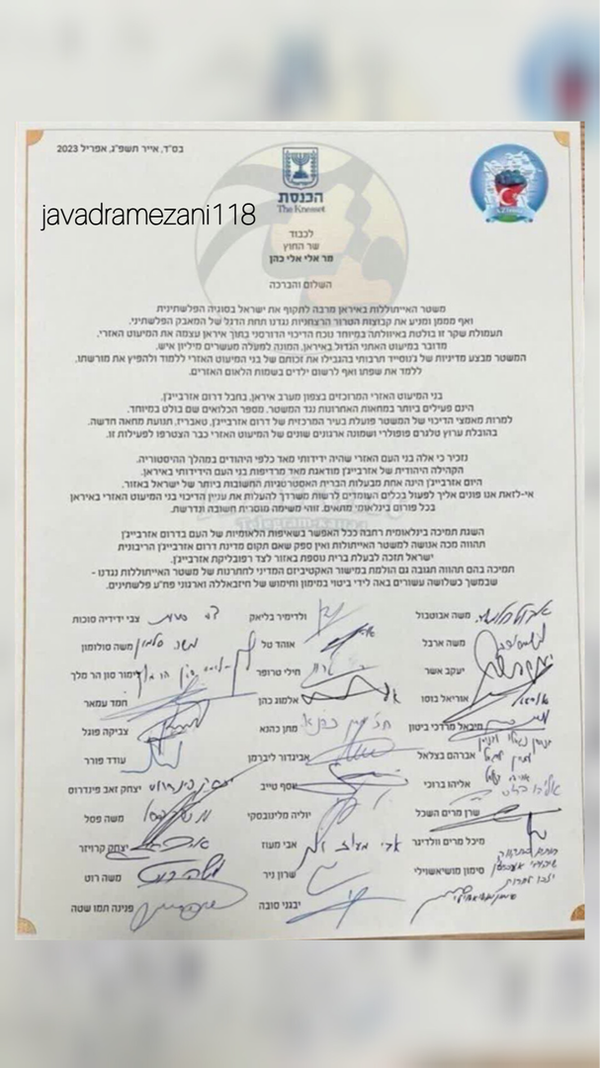 בס"ד, אייר תשפ"ג, אפריל 2023
הכנסת
The Knesset
javadramezani118
לכבוד
שר החוץ
מר אלי אלי כהן
השלום והברכה
משטר האייתוללות באיראן מרבה לתקוף את ישראל בסוגיה הפלשתינית
ואף מממן ומניע את קבוצות הטרור הרצחניות נגדנו תחת הדגל של המאבק הפלשתיני.
תעמולת שקר זו בולטת באיוולתה במיוחד נוכח הדיכוי הדורסני בתוך איראן עצמה את המיעוט האזרי.
מדובר במיעוט האתני הגדול באיראן, המונה למעלה מעשרים מיליון איש.
המשטר מבצע מדיניות של ג'נוסייד תרבותי בהגבילו את זכותם של בני המיעוט האזרי ללמוד ולהפיץ את מורשתו,
ללמד את שפתו ואף לרשום ילדים בשמות הלאום האזרים.
בני המיעוט האזרי המרוכזים בצפון מערב איראן, בחבל דרום אזרבייג'ן,
הינם פעילים ביותר במחאות האחרונות נגד המשטר. מספר הכלואים שם בולט במיוחד.
למרות מאמצי הדיכוי של המשטר פועלת בעיר המרכזית של דרום אזרבייג'ן, טאבריז, תנועת מחאה חדשה.
בהובלת ערוץ טלגרם פופולרי ושמונה ארגונים שונים של המיעוט האזרי כבר הצטרפו לפעילות זו.
נזכיר כי אלה בני העם האזרי שהיה ידידותי מאד כלפי היהודים במהלך ההיסטוריה.
הקהילה היהודית של אזרבייג'ן מודאגת מאד מרדיפות בני העם הידידותי באיראן.
היום אזרבייג'ן הינה אחת מבעלות הברית האסטרטגיות החשובות ביותר של ישראל באזור.
אי-לזאת אנו פונים אליך לפעול בכלים העומדים לרשות משרדך להעלות את עניין הדיכוי בני המיעוט האזרי באיראן
בכל פורום בינלאומי מתאים. זוהי משימה מוסרית חשובה ונדרשת.
השגת תמיכה בינלאומית רחבה ככל האפשר בשאיפות הלאומיות של העם בדרום אזרבייג'ן
תהווה מכה אנושה למשטר האייתולות ואין ספק שאם תקום מדינת דרום אזרבייג'ן הריבונית
ישראל תזכה לבעלת ברית נוספת באזור לצד רפובליקת אזרבייג'ן.
תמיכה בהם תהווה תגובה גם הולמת במישור האקטיביזם המדיני לחתרנות של משטר האייתוללות נגדנו -
שבמשך כשלושה עשורים באה לידי ביטוי במימון וחימוש של חיזבאללה וארגוני פח"ע פלשתינים.
משה אבוטבול
ולדימיר בליאק
צבי ידידיה סוכות
משה ארבל
אוהד טל
משה סולומון
יעקב אשר
חילי טרופר
לימור סון הר מלך
אוריאל בוסו
אלמוג כהן
חמד עמאר
מיכאל מרדכי ביטון
מתן כהנא
צביקה פוגל
אברהם בצלאל
אביגדור ליברמן
עודד פורר
אליהו ברוכי
יוסף טייב
יצחק זאב פינדרוס
שרן מרים השכל
יוליה מלינובסקי
משה פסל
מיכל מרים וולדיגר
אבי מעוז
יצחק קרויזר
סימון מושיאשוילי
שרון ניר
משה רוט
יבגני סובה
פנינה תמנו שטה